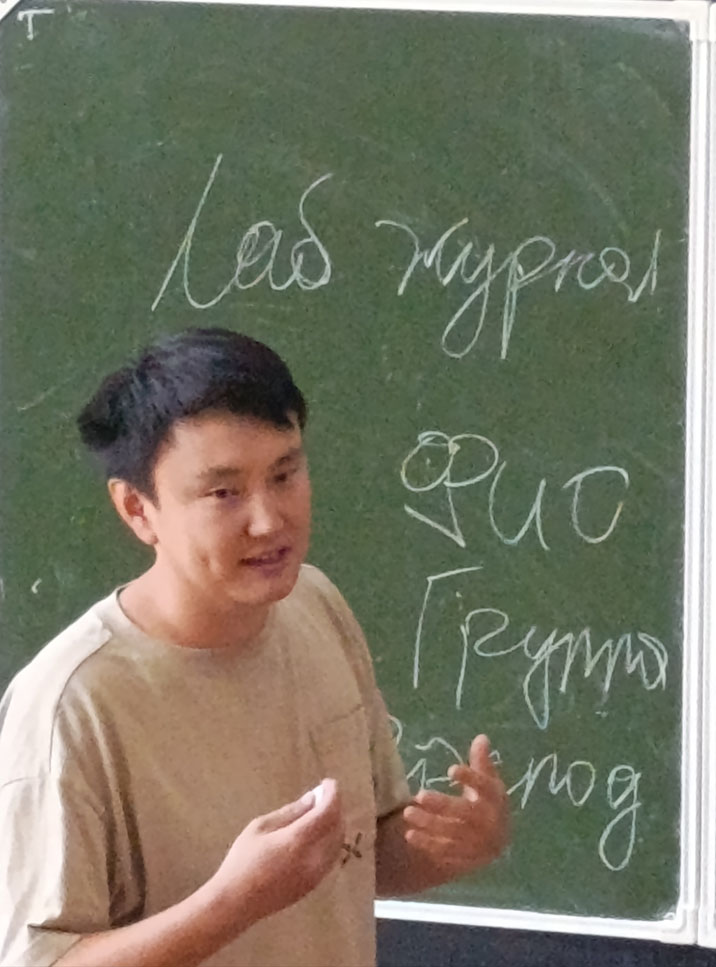 Лаб журнал
ФИО
Группа